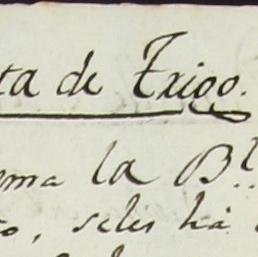 ta de Trigo.
oma la B.l
o, seles há